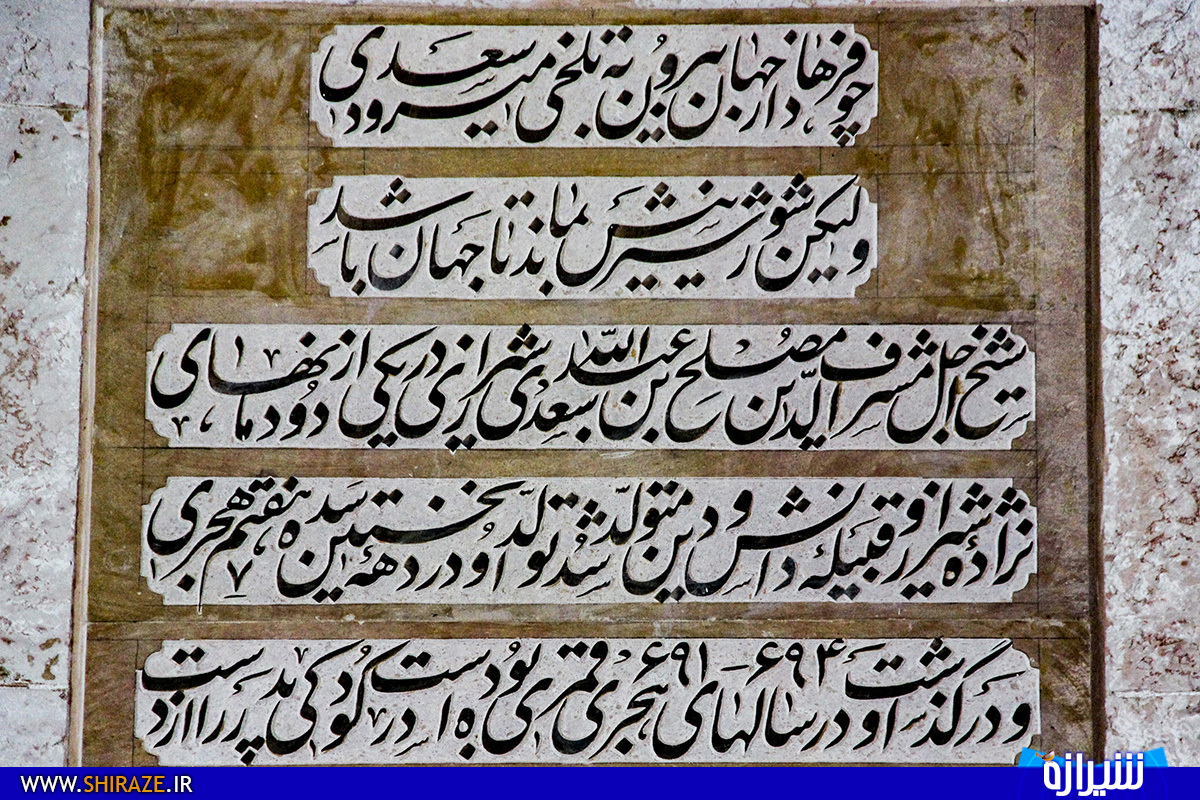 چو فرهاد از جهان بیرون به تلخی میرود سعدی
ولیکن شور شیرینش بماند تا جهان باشد
شیخ اجل مشرف الدین مصلح بن عبدالله سعدی شیرازی در یکی از دودمانهای
نژاده شیراز و قبیله دانش و دین متولد شد تولد او در دهه نخستین سده هفتم هجری
و درگذشت او در سالهای ۶۹۴ - ۶۹۱ هجری قمری بوده است در کودکی پدر را از دست
WWW.SHIRAZE.IR
شیرازه